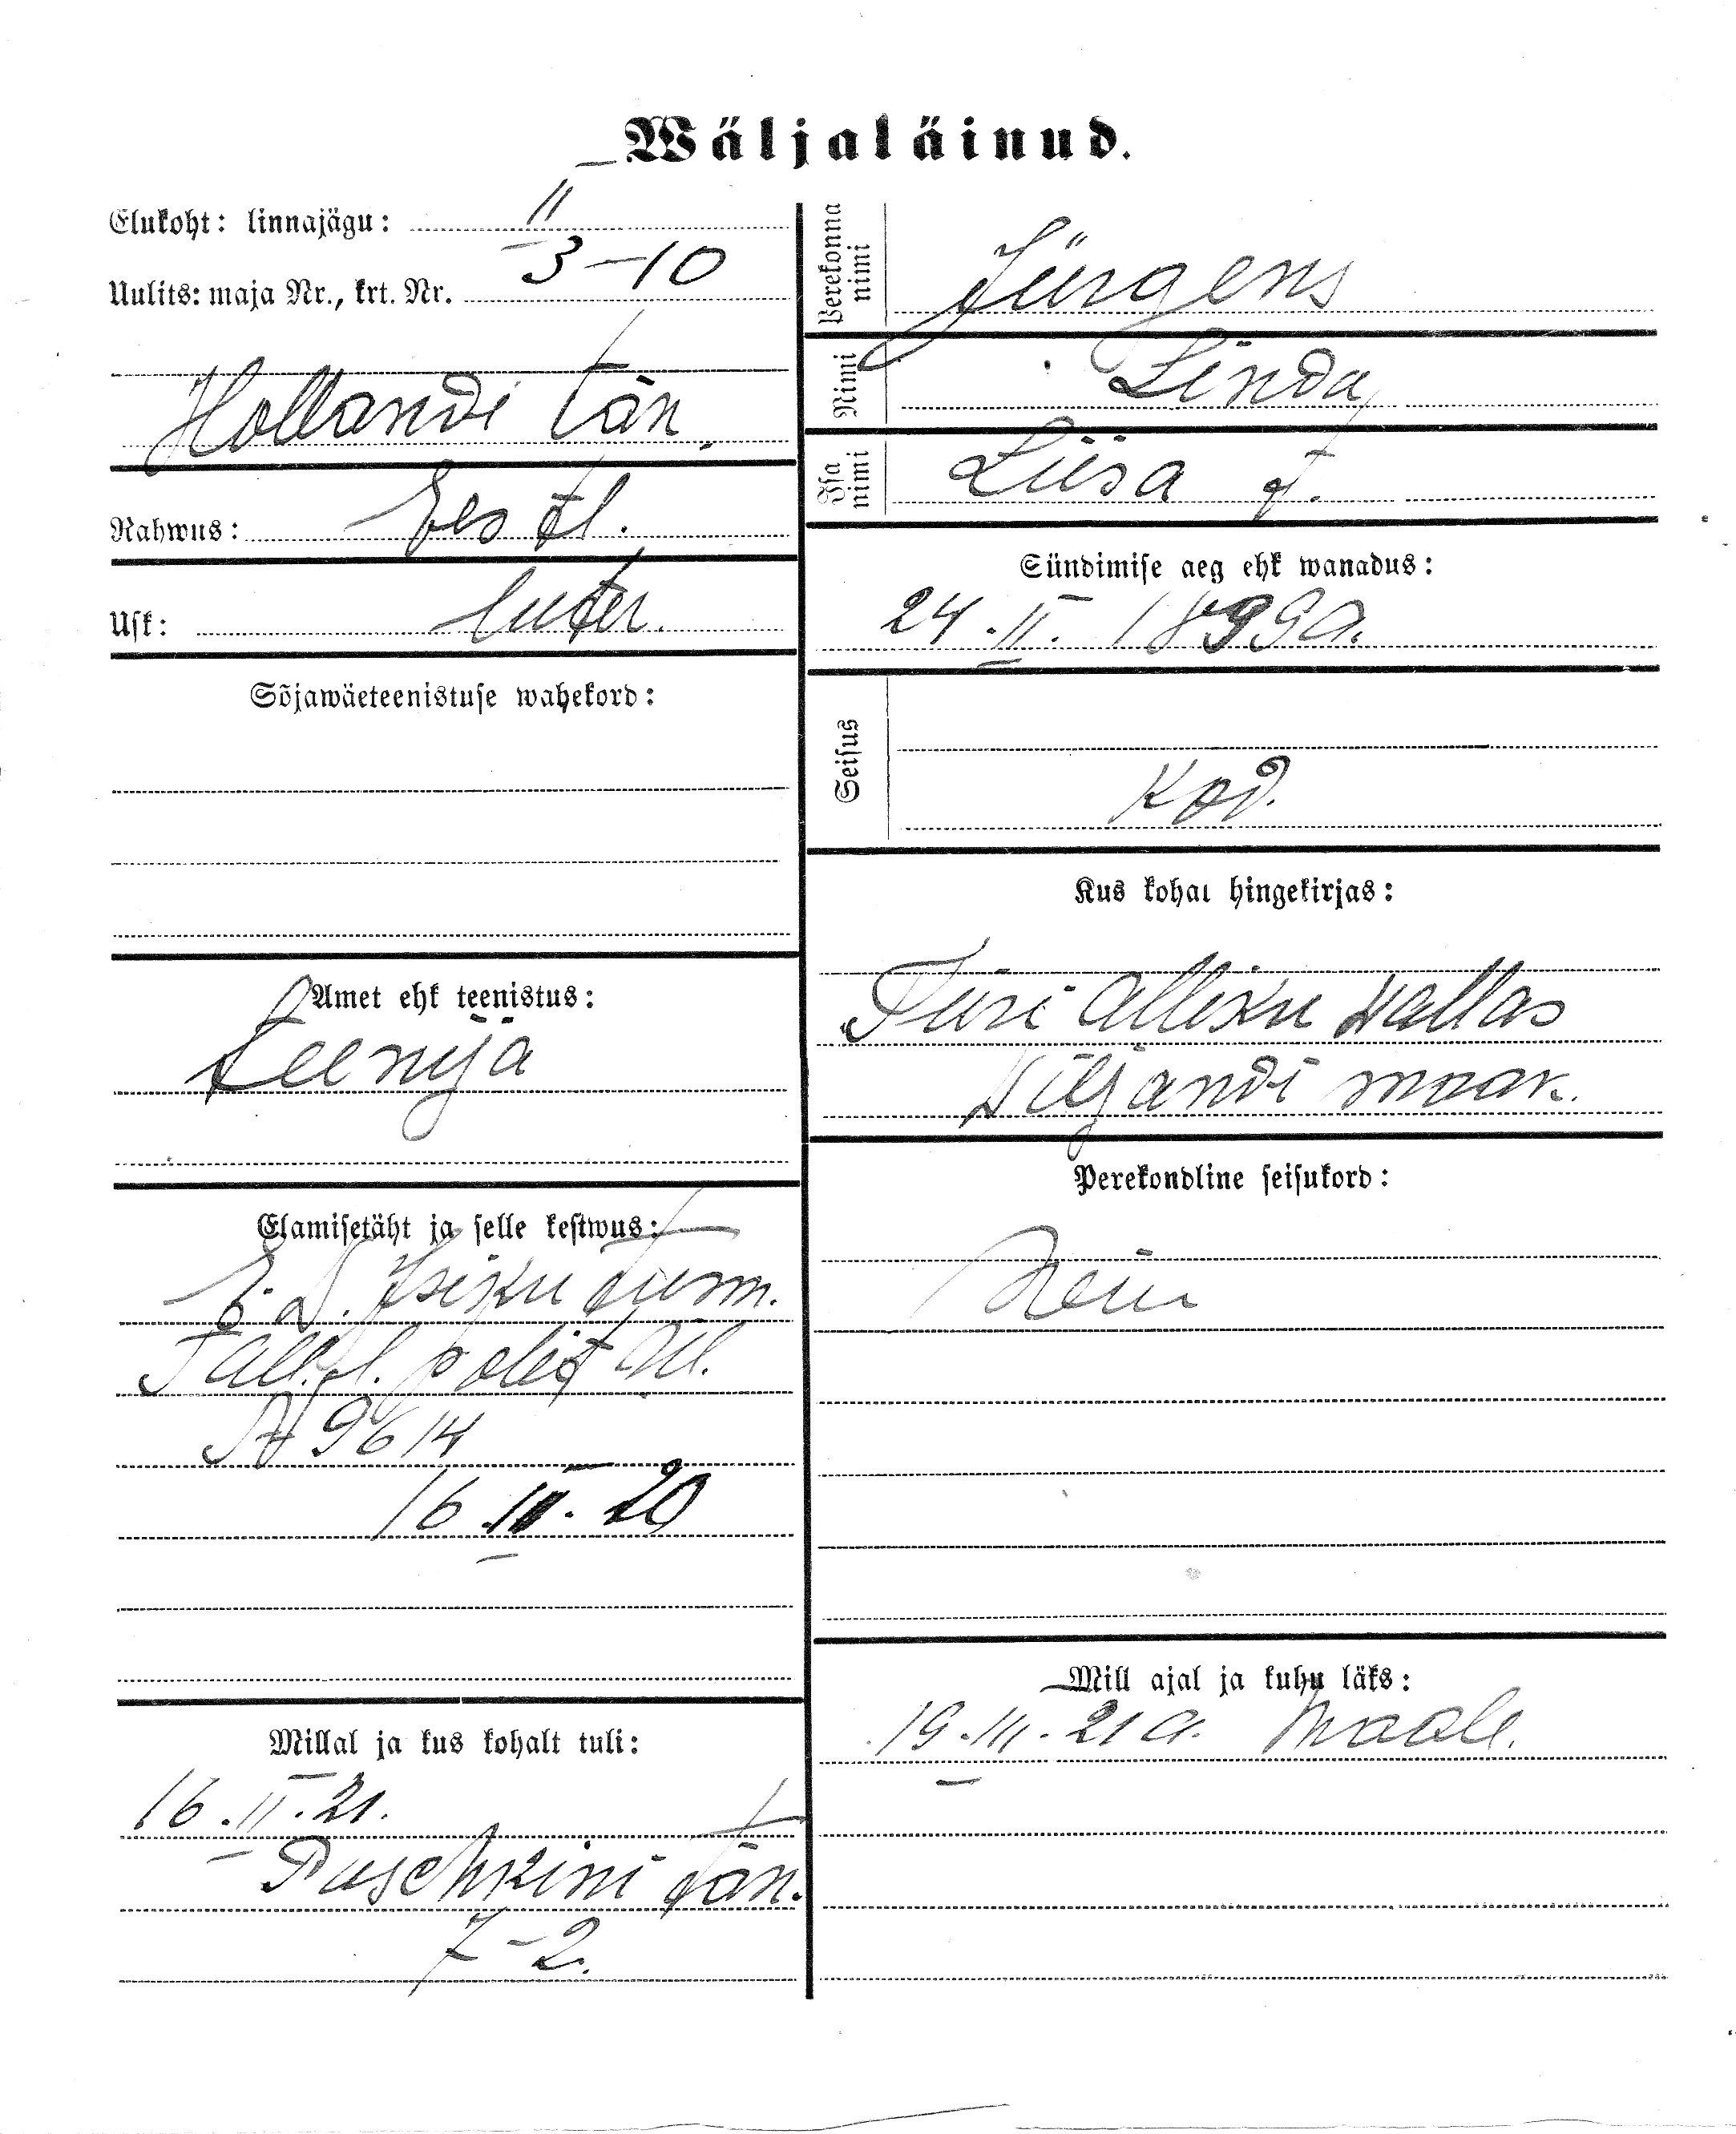 Wäljaläinud.
Elukoht: linnajägu: II
Uulits: maja Nr., krt. Nr. 3-10
Hollandi tän.
Rahwus: Eestl.
Usk: luter.
Sõjawäeteenistuse wahekord:
Amet ehk teenistus:
teenija
Elamisetäht ja selle kestwus:
E. W. Isiku tunn.
Tall. l. polits. ül.
A 9614
16.III.20
Millal ja kus kohalt tuli:
16.II.21.
Puschkini tän.
7-2.
Perekonna nimi Jürgens
Nimi Linda
Isa nimi Liisa t.
Sündimise aeg ehk wanadus:
24.II.1899a.
Seisus
Kod.
Kus kohal hingekirjas:
Türi Alliku wallas
Wiljandi maak.
Perekondline seisukord:
Neiu
Mill ajal ja kuhu läks:
19.III.21a. Maale.